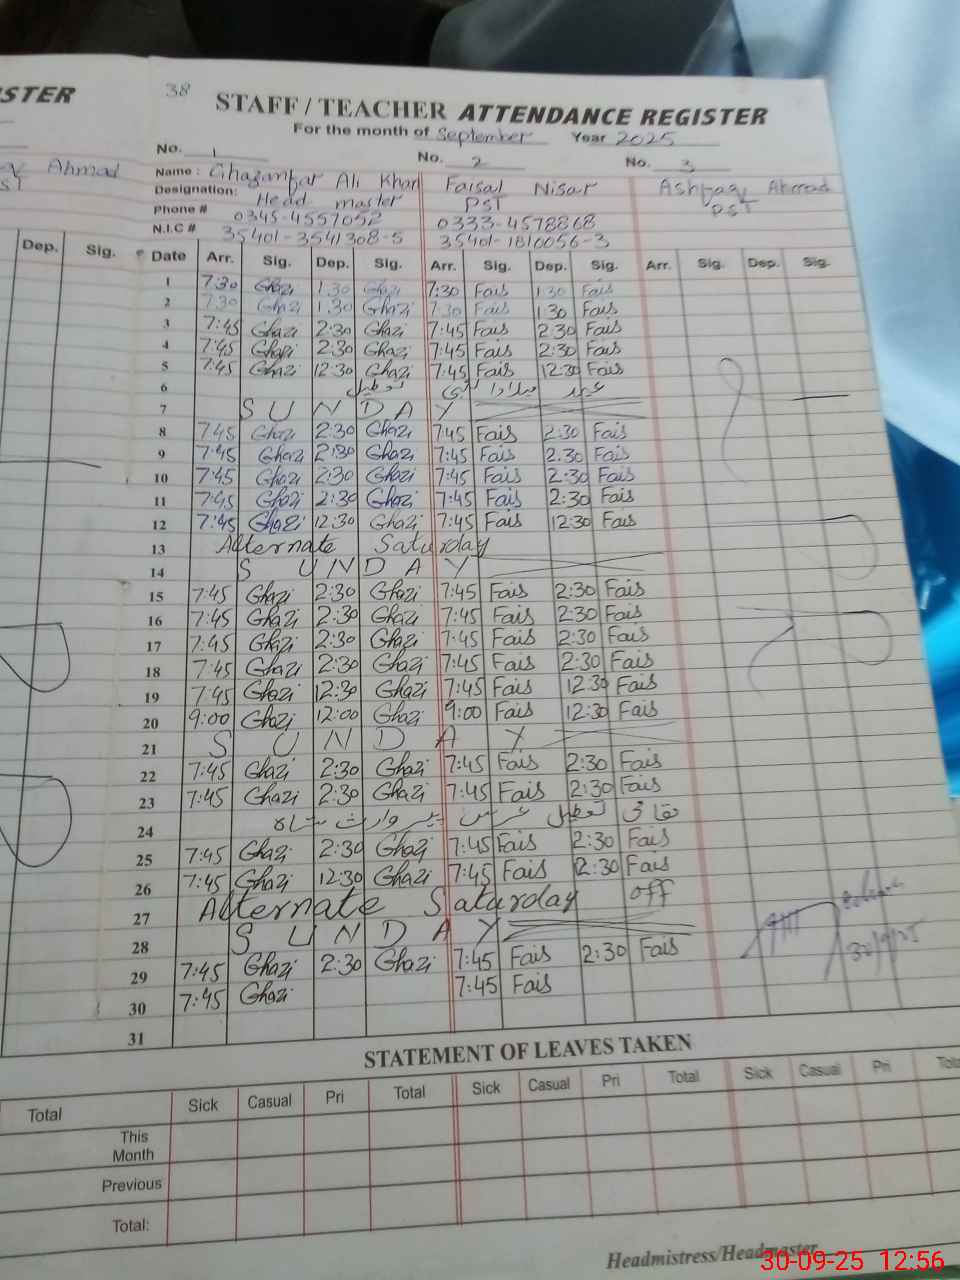 STER
Ahmad
ST
Dep. Sig.
38
STAFF / TEACHER ATTENDANCE REGISTER
For the month of September Year 2025
No. 1 No. 2 No. 3
Name : Ghazanfar Ali Khan Faisal Nisar Ashfaq Ahmad
Designation: Head master PST PST
Phone # 0345-4557052 0333-4578868
N.I.C # 35401-3541308-5 35401-1810056-3
Date Arr. Sig. Dep. Sig. Arr. Sig. Dep. Sig. Arr. Sig. Dep. Sig.
1 7:30 Ghazi 1:30 Ghazi 7:30 Fais 1:30 Fais
2 7:30 Ghazi 1:30 Ghazi 7:30 Fais 1:30 Fais
3 7:45 Ghazi 2:30 Ghazi 7:45 Fais 2:30 Fais
4 7:45 Ghazi 2:30 Ghazi 7:45 Fais 2:30 Fais
5 7:45 Ghazi 12:30 Ghazi 7:45 Fais 12:30 Fais
6 عید میلاد النبی تعطیل
7 SUNDAY
8 7:45 Ghazi 2:30 Ghazi 7:45 Fais 2:30 Fais
9 7:45 Ghazi 2:30 Ghazi 7:45 Fais 2:30 Fais
10 7:45 Ghazi 2:30 Ghazi 7:45 Fais 2:30 Fais
11 7:45 Ghazi 2:30 Ghazi 7:45 Fais 2:30 Fais
12 7:45 Ghazi 12:30 Ghazi 7:45 Fais 12:30 Fais
13 Alternate Saturday
14 SUNDAY
15 7:45 Ghazi 2:30 Ghazi 7:45 Fais 2:30 Fais
16 7:45 Ghazi 2:30 Ghazi 7:45 Fais 2:30 Fais
17 7:45 Ghazi 2:30 Ghazi 7:45 Fais 2:30 Fais
18 7:45 Ghazi 2:30 Ghazi 7:45 Fais 2:30 Fais
19 7:45 Ghazi 12:30 Ghazi 7:45 Fais 12:30 Fais
20 9:00 Ghazi 12:00 Ghazi 9:00 Fais 12:30 Fais
21 SUNDAY
22 7:45 Ghazi 2:30 Ghazi 7:45 Fais 2:30 Fais
23 7:45 Ghazi 2:30 Ghazi 7:45 Fais 2:30 Fais
24 مقامی تعطیل عرس پیر وارث شاہ
25 7:45 Ghazi 2:30 Ghazi 7:45 Fais 2:30 Fais
26 7:45 Ghazi 12:30 Ghazi 7:45 Fais 12:30 Fais
27 Alternate Saturday off
28 SUNDAY
29 7:45 Ghazi 2:30 Ghazi 7:45 Fais 2:30 Fais
30 7:45 Ghazi 7:45 Fais
31
30/9/25
STATEMENT OF LEAVES TAKEN
Total Sick Casual Pri Total Sick Casual Pri Total Sick Casual Pri Total
This Month
Previous
Total:
Headmistress/Headmaster
30-09-25 12:56